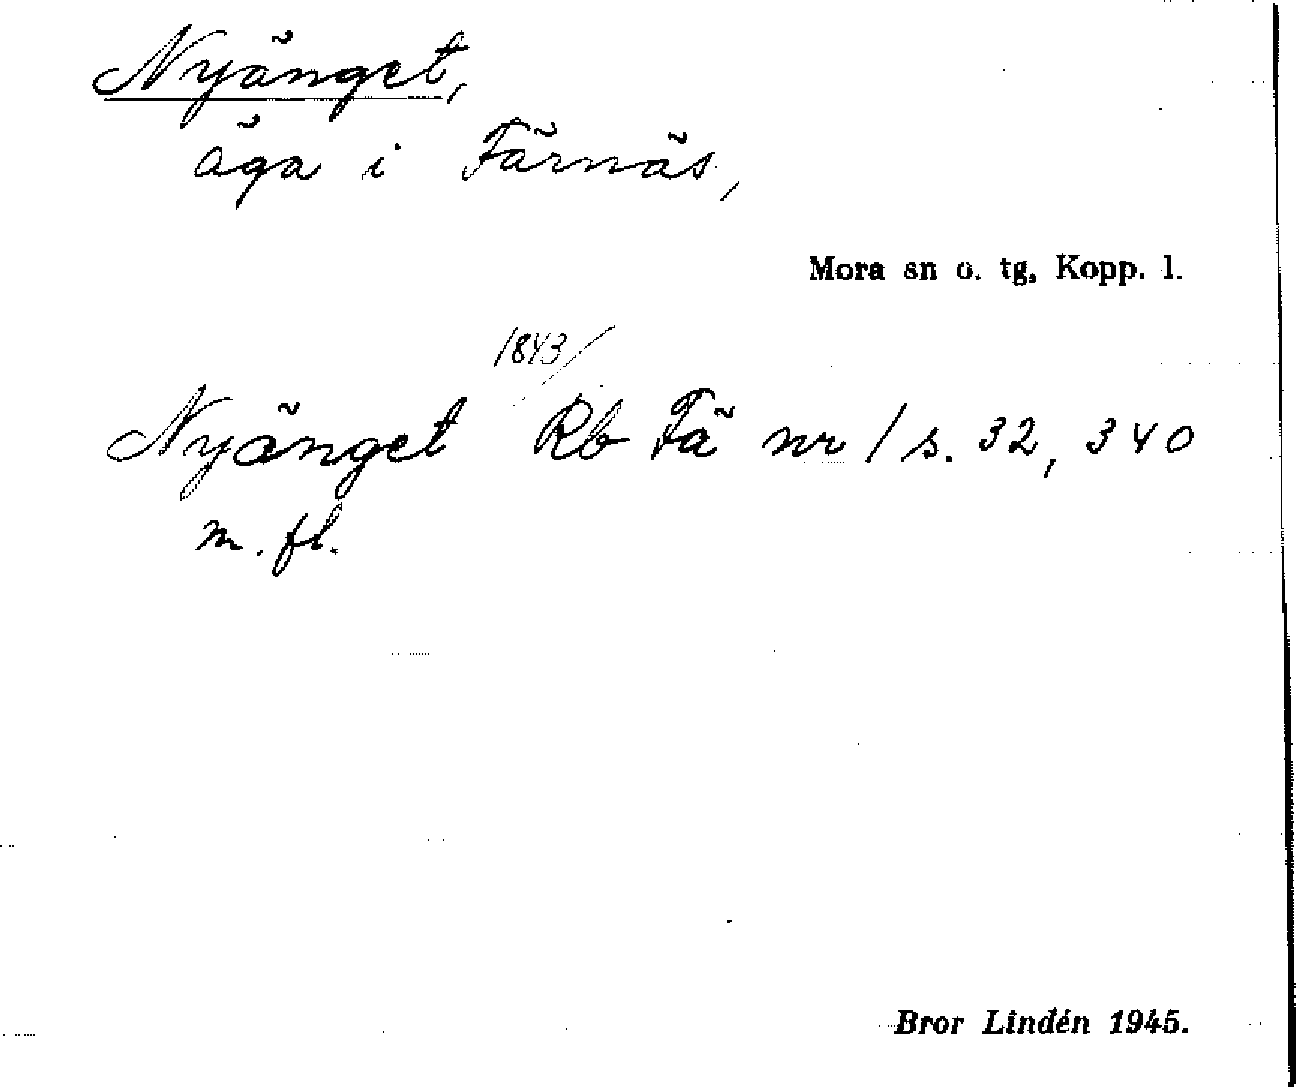 Nyänget,
äga i Färnäs,
Mora sn o. tg, Kopp. l.
1843/
Nyänget Rb Fä nr 1 s. 32, 340
m. fl.
Bror Lindén 1945.